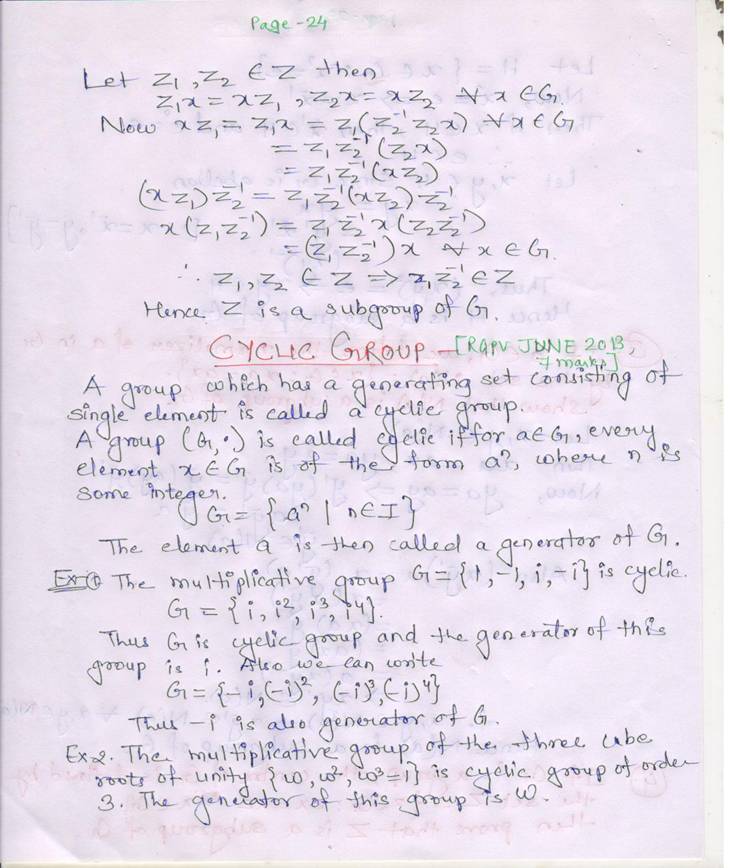 Page -24
Let Z₁, Z₂ ∈ Z then
Z₁x = xZ₁, Z₂x = xZ₂ ∀ x ∈ G.
Now xZ₁ = Z₁x = Z₁(Z₂⁻¹Z₂x) ∀ x ∈ G
= Z₁Z₂⁻¹(Z₂x)
= Z₁Z₂⁻¹(xZ₂)
(xZ₁)Z₂⁻¹ = Z₁Z₂⁻¹(xZ₂)Z₂⁻¹
x(Z₁Z₂⁻¹) = Z₁Z₂⁻¹x(Z₂Z₂⁻¹)
= (Z₁Z₂⁻¹)x ∀ x ∈ G.
∴ Z₁, Z₂ ∈ Z => Z₁Z₂⁻¹ ∈ Z
Hence Z is a subgroup of G.
CYCLIC GROUP - [RGPV JUNE 2013,
7 marks]
A group which has a generating set consisting of
single element is called a cyclic group.
A group (G, ·) is called cyclic if for a ∈ G, every
element x ∈ G is of the form aⁿ, where n is
some integer.
G = {aⁿ | n ∈ I}
The element a is then called a generator of G.
Ex-① The multiplicative group G = {1, -1, i, -i} is cyclic.
G = {i, i², i³, i⁴}.
Thus G is cyclic group and the generator of this
group is i. Also we can write
G = {-i, (-i)², (-i)³, (-i)⁴}
Thus -i is also generator of G.
Ex-2. The multiplicative group of the three cube
roots of unity {ω, ω², ω³=1} is cyclic group of order
3. The generator of this group is ω.